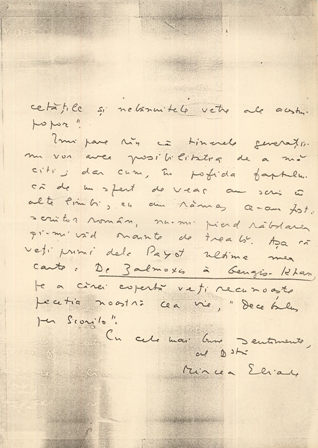 cetățile și nebănuitele vetre ale acestui
popor".
Îmi pare rău că tinerele generații
nu vor avea posibilitatea de a mă
citi; dar cum, în pofida faptului
că de un sfert de veac am scris în
alte limbi, eu am rămas ce-am fost:
scriitor român, nu-mi pierd răbdarea
și-mi văd înainte de treabă. Așa că
veți primi dela Payot ultima mea
carte: De Zalmoxis à Gengis-Khan,
pe a cărei copertă veți recunoaște
pecetia noastră cea vie, "Decebalus
per Scorilo".
Cu cele mai bune sentimente,
al Dstră
Mircea Eliade